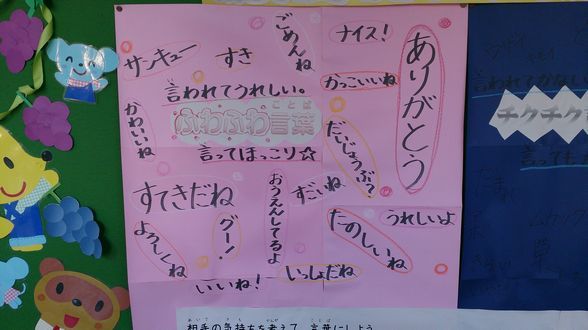 サンキュー
すき
ごめんね
ナイス!
ありがとう
かっこいいね
かわいいね
言われてうれしい。
ふわふわ言葉
ことば
言ってほっこり☆
だいじょうぶ?
すてきだね
おうえんしてるよ
すごいね
うれしいよ
たのしいね
よろしくね
グー!
いいね!
いっしょだね
相手の気持ちを考えて、言葉にしよう
言われてかなしい
チクチク言
言って